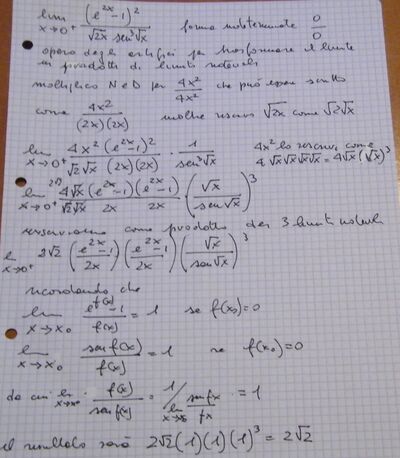 lim x→0⁺ (e^{2x}-1)^2 / (√2x sen^3√x) forma indeterminata 0/0
opero degli artifici per trasformare il limite
in prodotti di limiti notevoli
moltiplico N e D per 4x²/4x² che può essere scritto
come 4x²/((2x)(2x)) inoltre riscrivo √2x come √2√x
lim x→0⁺ 4x²/(√2√x) (e^{2x}-1)^2/((2x)(2x)) · 1/sen^3√x 4x² lo riscrivo come
4√x√x√x√x = 4√x(√x)^3
lim x→0⁺ 4√x/(√2√x) (e^{2x}-1)/2x (e^{2x}-1)/2x · (√x/sen√x)^3
riscriviamo come prodotto dei 3 limiti notevoli
lim x→0⁺ 2√2 ((e^{2x}-1)/2x) ((e^{2x}-1)/2x) (√x/sen√x)^3
ricordando che
lim x→x₀ (e^{f(x)}-1)/f(x) = 1 se f(x₀)=0
lim x→x₀ senf(x)/f(x) = 1 se f(x₀)=0
da cui lim x→x₀ f(x)/senf(x) = 1/(lim x→x₀ senfx/fx) = 1
il risultato sarà 2√2(1)(1)(1)^3 = 2√2